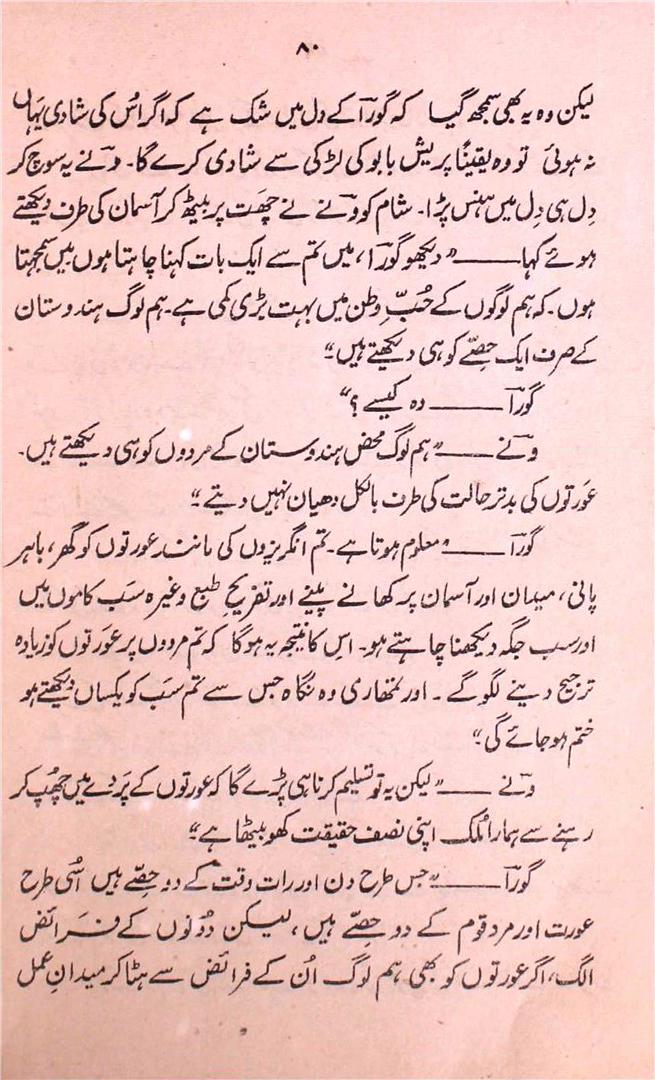 ۸۰
لیکن وہ یہ بھی سمجھ گیا کہ گورآ کے دل میں شک ہے کہ اگر اُس کی شادی یہاں
نہ ہوئی تو وہ یقیناً پریش بابو کی لڑکی سے شادی کرے گا۔ ونَے یہ سوچ کر
دِل ہی دِل میں ہنس پڑا۔ شام کو ونَے نے چھت پر بیٹھ کر آسمان کی طرف دیکھتے
ہوئے کہا——— ”دیکھو گورآ، میں تم سے ایک بات کہنا چاہتا ہوں میں سمجھتا
ہوں۔ کہ ہم لوگوں کے حُبِّ وطن میں بہت بڑی کمی ہے۔ ہم لوگ ہندوستان
کے صرف ایک حِصّے کو ہی دیکھتے ہیں“
گورآ ——— وہ کیسے؟“
ونَے ——— ”ہم لوگ محض ہندوستان کے مردوں کو ہی دیکھتے ہیں۔
عورتوں کی بدتر حالت کی طرف بالکل دھیان نہیں دیتے“
گورآ ——— ”معلوم ہوتا ہے۔ تم انگریزوں کی مانند عورتوں کو گھر، باہر
پانی، میدان اور آسمان پر کھانے پینے اور تفریحِ طبع وغیرہ سَب کاموں میں
اور سب جگہ دیکھنا چاہتے ہو۔ اس کا نتیجہ یہ ہوگا کہ تم مردوں پر عورتوں کو زیادہ
ترجیح دینے لگو گے۔ اور تمھاری وہ نگاہ جس سے تم سَب کو یکساں دیکھتے ہو
ختم ہو جائے گی“
ونَے ——— ”لیکن یہ تو تسلیم کرنا ہی پڑے گا کہ عورتوں کے پردے میں چھُپ کر
رہنے سے ہمارا مُلک اپنی نصف حقیقت کھو بیٹھا ہے“
گورآ ——— ”جس طرح دن اور رات وقت کے دو حِصّے ہیں اُسی طرح
عورت اور مرد قوم کے دو حِصّے ہیں، لیکن دونوں کے فرائض
الگ، اگر عورتوں کو بھی ہم لوگ اُن کے فرائض سے ہٹا کر میدانِ عمل